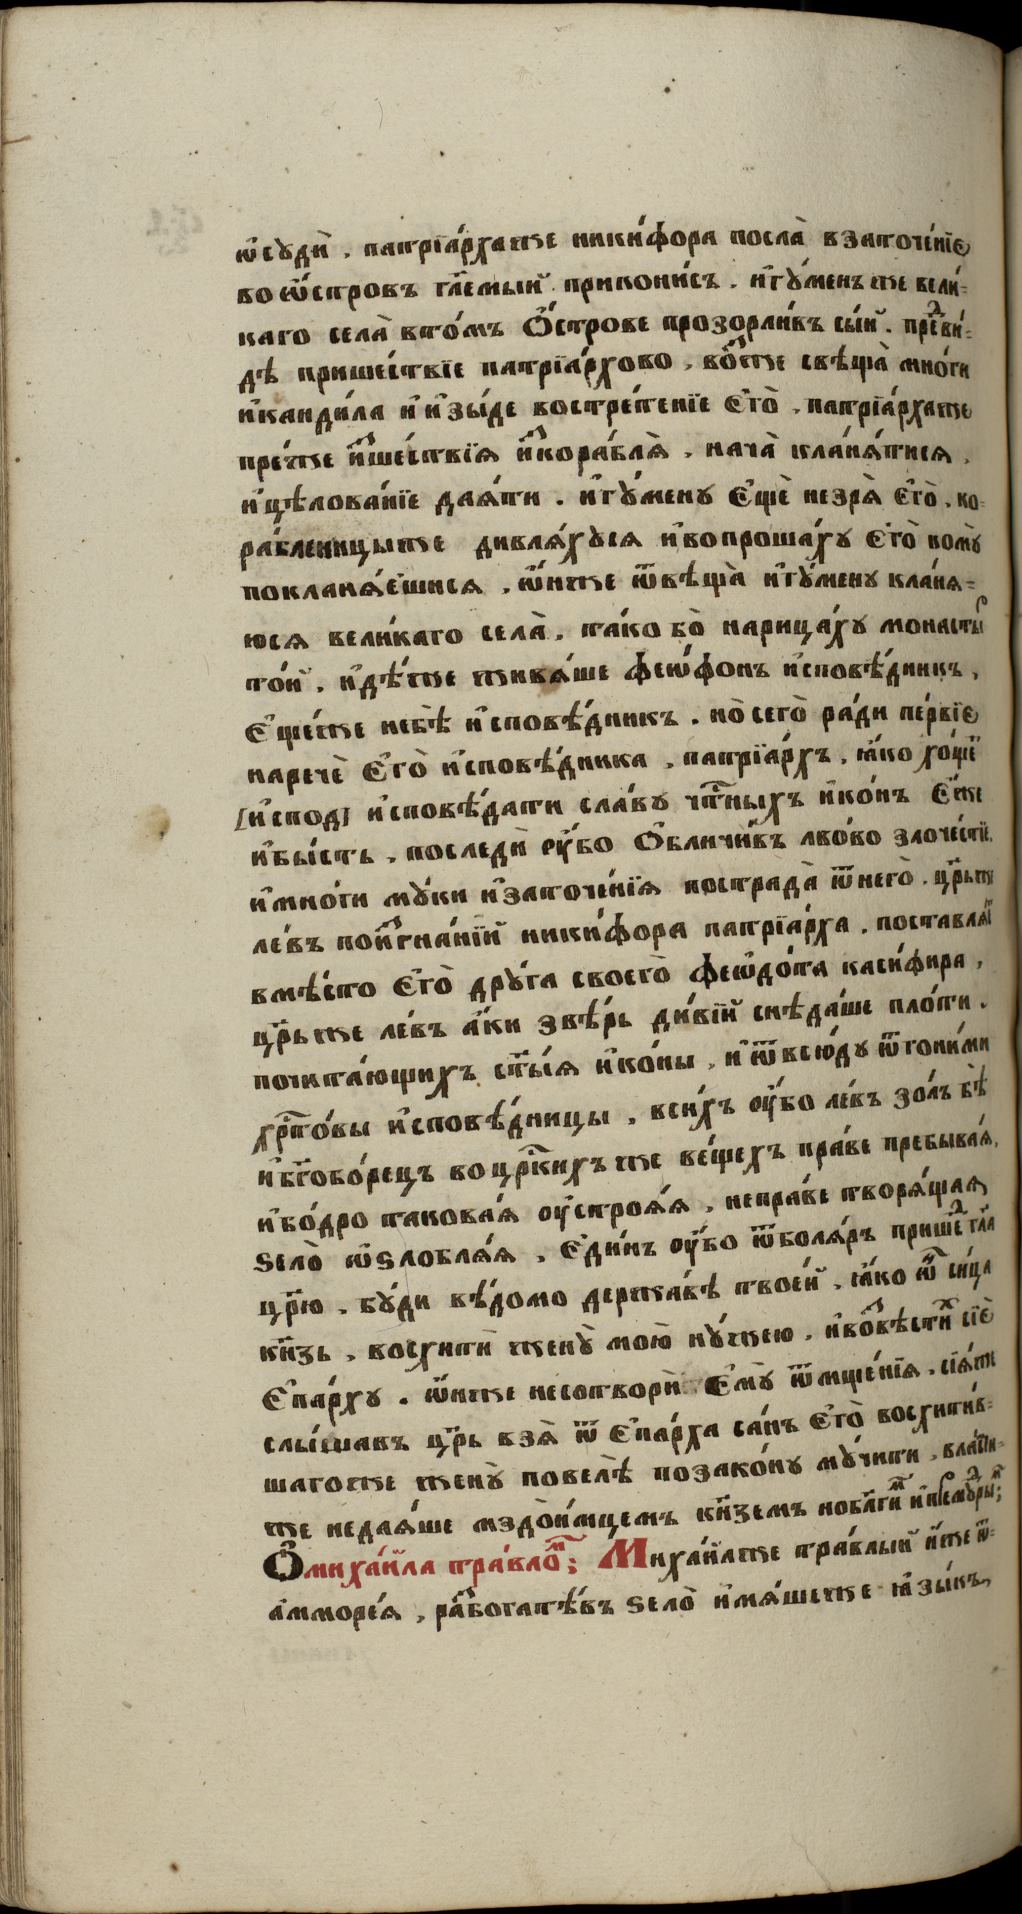 ѡ҆суди̇̀ . патрїа́рхаже ники́фора посла̀ взаточе́нїе
во ѻ҆́стровъ гл҃емый прикони́съ . и҆гу́менъже вели́-
каго села̀ вто́мъ Ѻ҆́строве прозорли́въ сы́й . преⷣви́-
дѣ прише́ствїе патрїа́рхово , во́жже свѣща̀ мно́ги
и҆канди́ла и҆ и҆зы́де востре́тенїе Є҆го̀ . патрїа́рхаже
пре́же и҆сше́ствїя и҆скора́бля̀ , нача̀ кла́нятися ,
и҆цѣлова́нїе дая́ти . и҆гу́мену Є҆щѐ незря̀ є҆го̀ . ко-
ра́бленицыже дивля́хуся и҆вопроша́ху Є҆го̀ кому̀
покланя́ешися , ѻ҆́нже ѿвѣща̀ и҆гу́мену кла́ня-
юся вели́каго села̀ . та́ко бо̀ нарица́ху монасты́рь
то́й . и҆дѣ́же живя́ше феѡ́фонъ и҆сповѣ́дникъ ,
Є҆ще́же небѣ̀ и҆сповѣ́дникъ . но̀ сего̀ ра́ди пе́рвїе
наречѐ Є҆го̀ и҆сповѣ́дника , патрїа́рхъ , ꙗ҆́ко хо́ще
[и҆спод] и҆сповѣ́дати сла́ву чⷭ҇тны́хъ и҆ко́нъ Є҆́же
и҆бы́сть , последи̇̀ ᲂу҆́бо Ѻ҆бличи́въ лво́во злоче́стїе
и҆мно́ги му́ки и҆заточе́нїя пострада̀ ѿнего̀ . цр҃ьже
ле́въ поизгна́нїй ники́фора патрїа́рха , поставля́
вмѣ́сто Є҆го̀ дру́га своего̀ феѡдо́та каси́фира ,
цр҃ьже ле́въ а҆́ки звѣ́рь ди́вїй снѣда́ше пло́ти .
почита́ющихъ ст҃ы́я и҆ко́ны , и҆ ѿвсю́ду ѿгони́ми
хрⷭ҇то́вы и҆сповѣ́дницы , всихъ ᲂу҆́бо ле́въ зо́лъ бѣ̀
и҆бг҃обо́рецъ во црⷭ҇кихъже ве́щехъ пра́ве пребыва́я ,
и҆бо́дро такова́я ᲂу҆строя́я , непра́ве творя́щая
ѕело̀ ѡ҆ѕлобля́я , Є҆ди́нъ ᲂу҆́бо ѿболя́ръ прише́ⷣ гл҃а
цр҃ю , бу́ди вѣ́домо держа́вѣ твое́й , ꙗ҆́ко ѿ си́ца
кн҃зь , восхити̇̀ жену̀ мою̀ ну́жею , и҆возвѣсти́хъ сїѐ
Є҆па́рху . ѻ҆́нже несотвори̇̀ Є҆му̀ ѿмще́нїя . сїя́же
слы́шавъ цр҃ь взя̀ ѿ Є҆па́рха са́нъ Є҆го̀ восхити́в-
шагоже жену̀ повелѣ̀ позако́ну му́чити , вла́сти-
же недая́ше мздои́мцемъ кн҃земъ нобл҃ги́мъ и҆премⷣрым ;
Ѻ҆михаи́ла тра́вло́мъ ; Михаи́лже тра́влый и҆́же ѿ-
а҆ммо́рея , ра́збогатѣ́въ ѕело̀ и҆мя́шеже ꙗ҆зы́къ